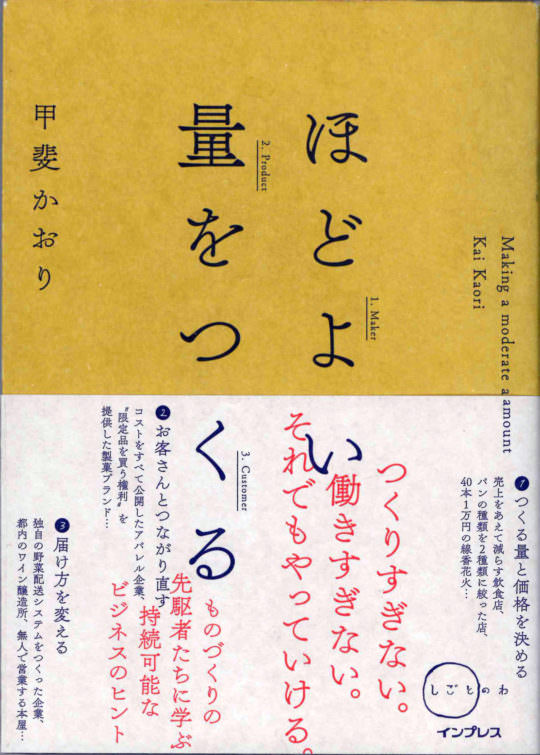 ほどよい
量をつくる
甲斐かおり
Making a moderate a amount
Kai Kaori
1. Maker
2. Product
3. Customer
つくりすぎない。
働きすぎない。
それでもやっていける。
ものづくりの
先駆者たちに学ぶ
持続可能な
ビジネスのヒント
❶つくる量と価格を決める
売上をあえて減らす飲食店、
パンの種類を2種類に絞った店、
40本1万円の線香花火…
❷お客さんとつながり直す
コストをすべて公開したアパレル企業、
“限定品を買う権利”を
提供した製菓ブランド…
❸届け方を変える
独自の野菜配送システムをつくった企業、
都内のワイン醸造所、無人で営業する本屋…
しごとのわ
インプレス